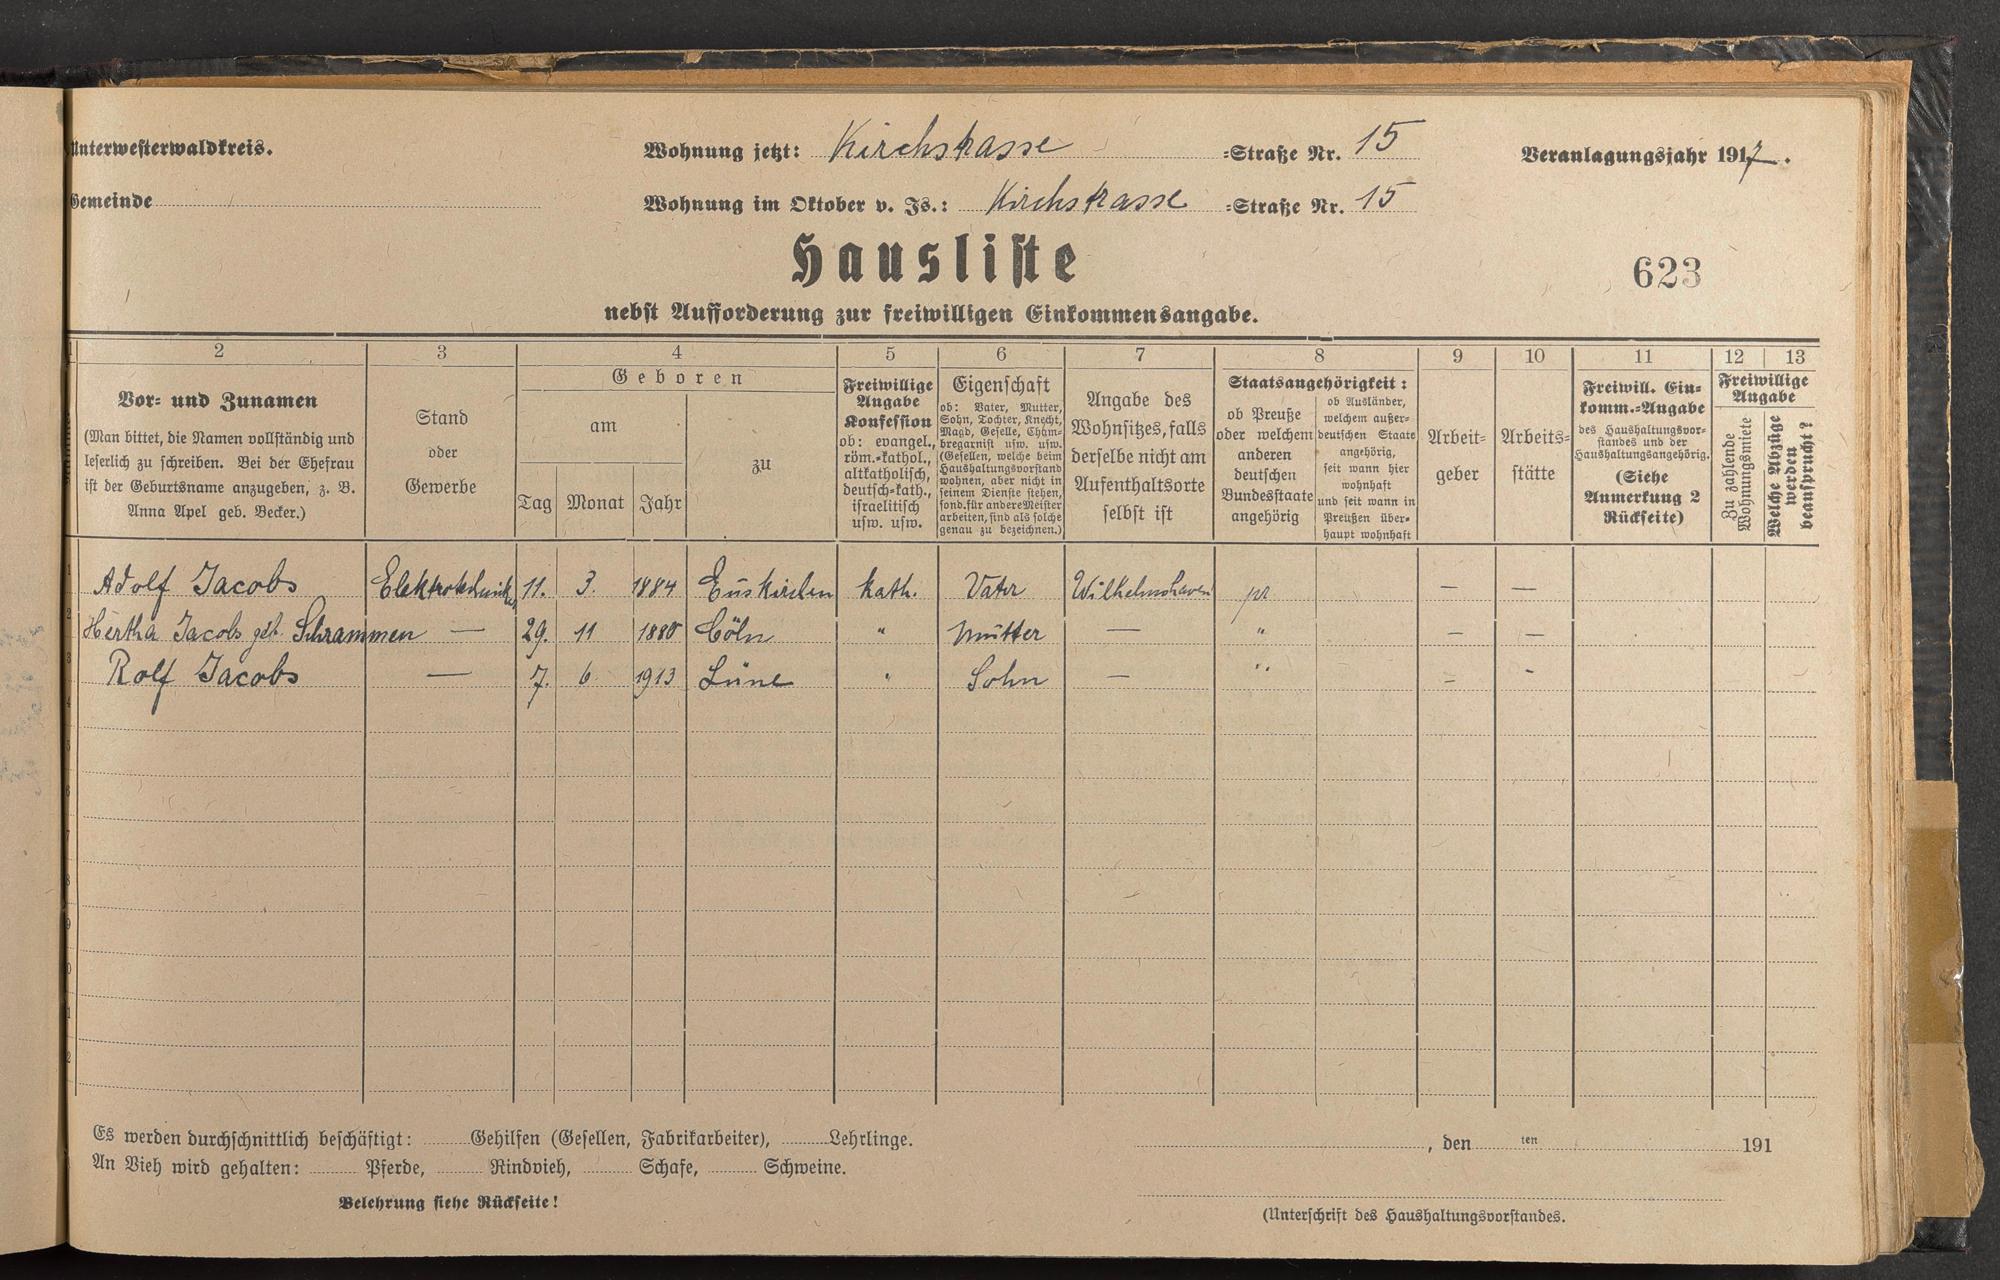 Unterwesterwaldkreis.
Wohnung jetzt: Kirchstrasse =Straße Nr. 15
Veranlagungsjahr 1917.
Gemeinde
Wohnung im Oktober v. Js.: Kirchstrasse =Straße Nr. 15
Hausliste
623
nebst Aufforderung zur freiwilligen Einkommensangabe.
2 3 4 5 6 7 8 9 10 11 12 13
Vor- und Zunamen
(Man bittet, die Namen vollständig und
leserlich zu schreiben. Bei der Ehefrau
ist der Geburtsname anzugeben, z. B.
Anna Apel geb. Becker.)
Stand
oder
Gewerbe
Geboren
am
Tag Monat Jahr
zu
Freiwillige
Angabe
Konfession
ob: evangel.,
röm.-kathol.,
altkatholisch,
deutsch-kath.,
israelitisch
usw. usw.
Eigenschaft
ob: Vater, Mutter,
Sohn, Tochter, Knecht,
Magd, Geselle, Cham-
bregarnist usw. usw.
(Gesellen, welche beim
Haushaltungsvorstand
wohnen, aber nicht in
seinem Dienste stehen,
sond. für andere Meister
arbeiten, sind als solche
genau zu bezeichnen.)
Angabe des
Wohnsitzes, falls
derselbe nicht am
Aufenthaltsorte
selbst ist
Staatsangehörigkeit:
ob Preuße
oder welchem
anderen
deutschen
Bundesstaate
angehörig
ob Ausländer,
welchem außer-
deutschen Staate
angehörig,
seit wann hier
wohnhaft
und seit wann in
Preußen über-
haupt wohnhaft
Arbeit-
geber
Arbeits-
stätte
Freiwill. Ein-
komm.-Angabe
des Haushaltungsvor-
standes und der
Haushaltungsangehörig.
(Siehe
Anmerkung 2
Rückseite)
Freiwillige
Angabe
Zu zahlende
Wohnungsmiete
Welche Abzüge
werden
beansprucht?
1 Adolf Jacobs Elektrotechniker 11. 3. 1884 Euskirchen kath. Vater Wilhelmshaven pr. — —
2 Hertha Jacobs geb. Schrammen — 29. 11 1880 Cöln " Mutter — " — —
3 Rolf Jacobs — 7. 6 1913 Lüne " Sohn — " = -
4
5
6
7
8
9
0
1
2
Es werden durchschnittlich beschäftigt: Gehilfen (Gesellen, Fabrikarbeiter), Lehrlinge.
, den ten 191
An Vieh wird gehalten: Pferde, Rindvieh, Schafe, Schweine.
Belehrung siehe Rückseite!
(Unterschrift des Haushaltungsvorstandes.